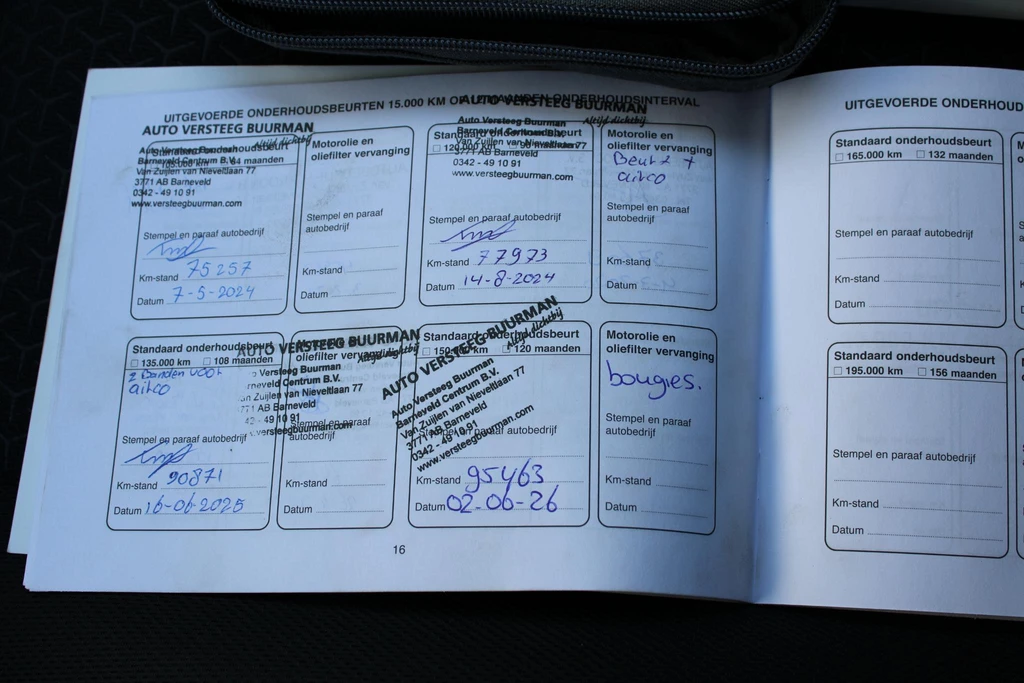 UITGEVOERDE ONDERHOUDSBEURTEN 15.000 KM OF
ONDERHOUDSINTERVAL
AUTO VERSTEEG BUURMAN
Altijd dichtbij
Standaard onderhoudsbeurt
105.000 km 84 maanden
Auto Versteeg Buurman
Barneveld Centrum B.V.
Van Zuijlen van Nieveltlaan 77
3771 AB Barneveld
0342 - 49 10 91
www.versteegbuurman.com
Stempel en paraaf autobedrijf
Km-stand 75257
Datum 7-5-2024
Motorolie en
oliefilter vervanging
Stempel en paraaf
autobedrijf
Km-stand
Datum
AUTO VERSTEEG BUURMAN
Altijd dichtbij
Auto Versteeg Buurman
Standaard onderhoudsbeurt
Barneveld Centrum B.V.
120.000 km 96 maanden
Van Zuijlen van Nieveltlaan 77
3771 AB Barneveld
0342 - 49 10 91
www.versteegbuurman.com
Stempel en paraaf autobedrijf
Km-stand 77973
Datum 14-8-2024
Motorolie en
oliefilter vervanging
Beurt +
airco
Stempel en paraaf
autobedrijf
Km-stand
Datum
Standaard onderhoudsbeurt
135.000 km 108 maanden
2 Banden voor
airco
Stempel en paraaf autobedrijf
Km-stand 90871
Datum 16-06-2025
AUTO VERSTEEG BUURMAN
Altijd dichtbij
oliefilter
Versteeg Buurman
rneveld Centrum B.V.
an Zuijlen van Nieveltlaan 77
771 AB Barneveld
42 - 49 10 91
versteegbuurman.com
Stempel en paraaf
autobedrijf
Km-stand
Datum
AUTO VERSTEEG BUURMAN
Altijd dichtbij
Standaard onderhoudsbeurt
150.000 km 120 maanden
Auto Versteeg Buurman
Barneveld Centrum B.V.
Van Zuijlen van Nieveltlaan 77
3771 AB Barneveld
0342 - 49 10 91
www.versteegbuurman.com
Stempel en paraaf autobedrijf
Km-stand 95463
Datum 02-06-26
Motorolie en
oliefilter vervanging
bougies.
Stempel en paraaf
autobedrijf
Km-stand
Datum
16
UITGEVOERDE ONDERHOUD
Standaard onderhoudsbeurt
165.000 km 132 maanden
Stempel en paraaf autobedrijf
Km-stand
Datum
Standaard onderhoudsbeurt
195.000 km 156 maanden
Stempel en paraaf autobedrijf
Km-stand
Datum